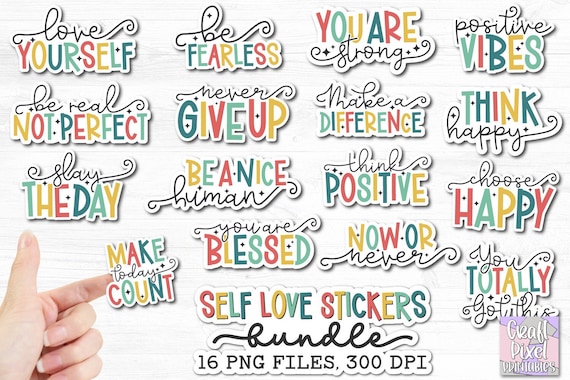 love
YOURSELF
be
FEARLESS
YOU ARE
strong
positive
VIBES
be real
NOT PERFECT
never
GIVE UP
Make a
DIFFERENCE
THINK
happy
slay
THE DAY
BE A NICE
human
think
POSITIVE
choose
HAPPY
MAKE
today
COUNT
you are
BLESSED
NOW OR
never
You
TOTALLY
Got this
SELF LOVE STICKERS
bundle
16 PNG FILES, 300 DPI
Craft
Pixel
PRINTABLES